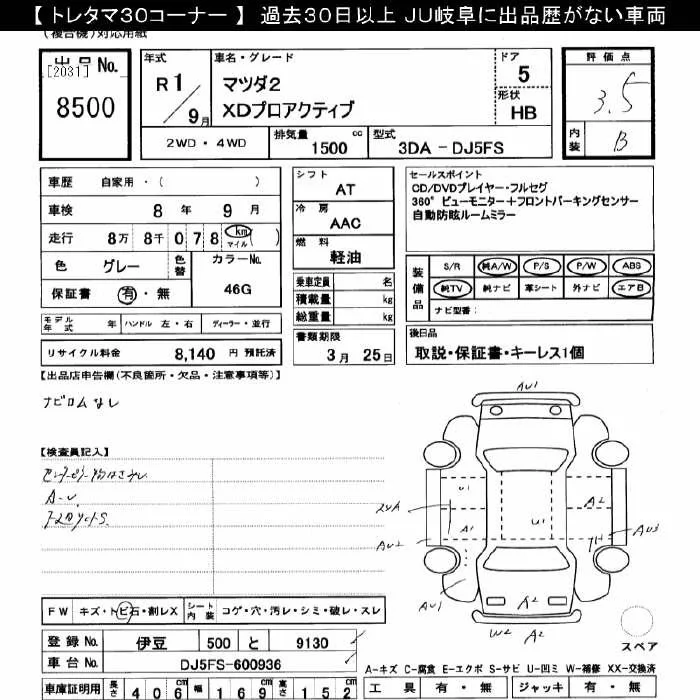 【 トレタマ30コーナー 】 過去30日以上 JU岐阜に出品歴がない車両
(複合機)対応用紙
出品No.
[2031]
8500
年式
R 1 / 9月
車名・グレード
マツダ2
XDプロアクティブ
ドア
5
形状
HB
2WD・4WD
排気量 1500 cc
型式 3DA - DJ5FS
評価点
3.5
内装
B
車歴 自家用・( )
車検 8年 9月
走行 8万 8千 078 km マイル ( )
色 グレー
色替
カラーNo.
46G
保証書 有・無
モデル年式 年
ハンドル 左・右
ディーラー・並行
リサイクル料金 8,140 円 預託済
シフト
AT
冷房
AAC
燃料
軽油
乗車定員 名
積載量 kg
総重量 kg
書類期限
3月 25日
セールスポイント
CD/DVDプレイヤー・フルセグ
360°ビューモニター+フロントパーキングセンサー
自動防眩ルームミラー
装備品
S/R 純A/W P/S P/W ABS
純TV 純ナビ 革シート 外ナビ エアB
ナビ型番:
後日品
取説・保証書・キーレス1個
【出品店申告欄(不良箇所・欠品・注意事項等)】
ナビロムなし
【検査員記入】
A-U
FW キズ・トビ石・割レX
シート内装 コゲ・穴・汚レ・シミ・破レ・スレ
登録No. 伊豆 500 と 9130
車台No. DJ5FS-600936
車庫証明用 長さ 406 幅 169 高さ 152
AU1
U1
A2
2UA
A1
U1
AU2
AU3
AU1
A2
W2 A2
スペア
A-キズ C-腐食 E-エクボ S-サビ U-凹ミ W-補修 XX-交換済
工具 有・無
ジャッキ 有・無